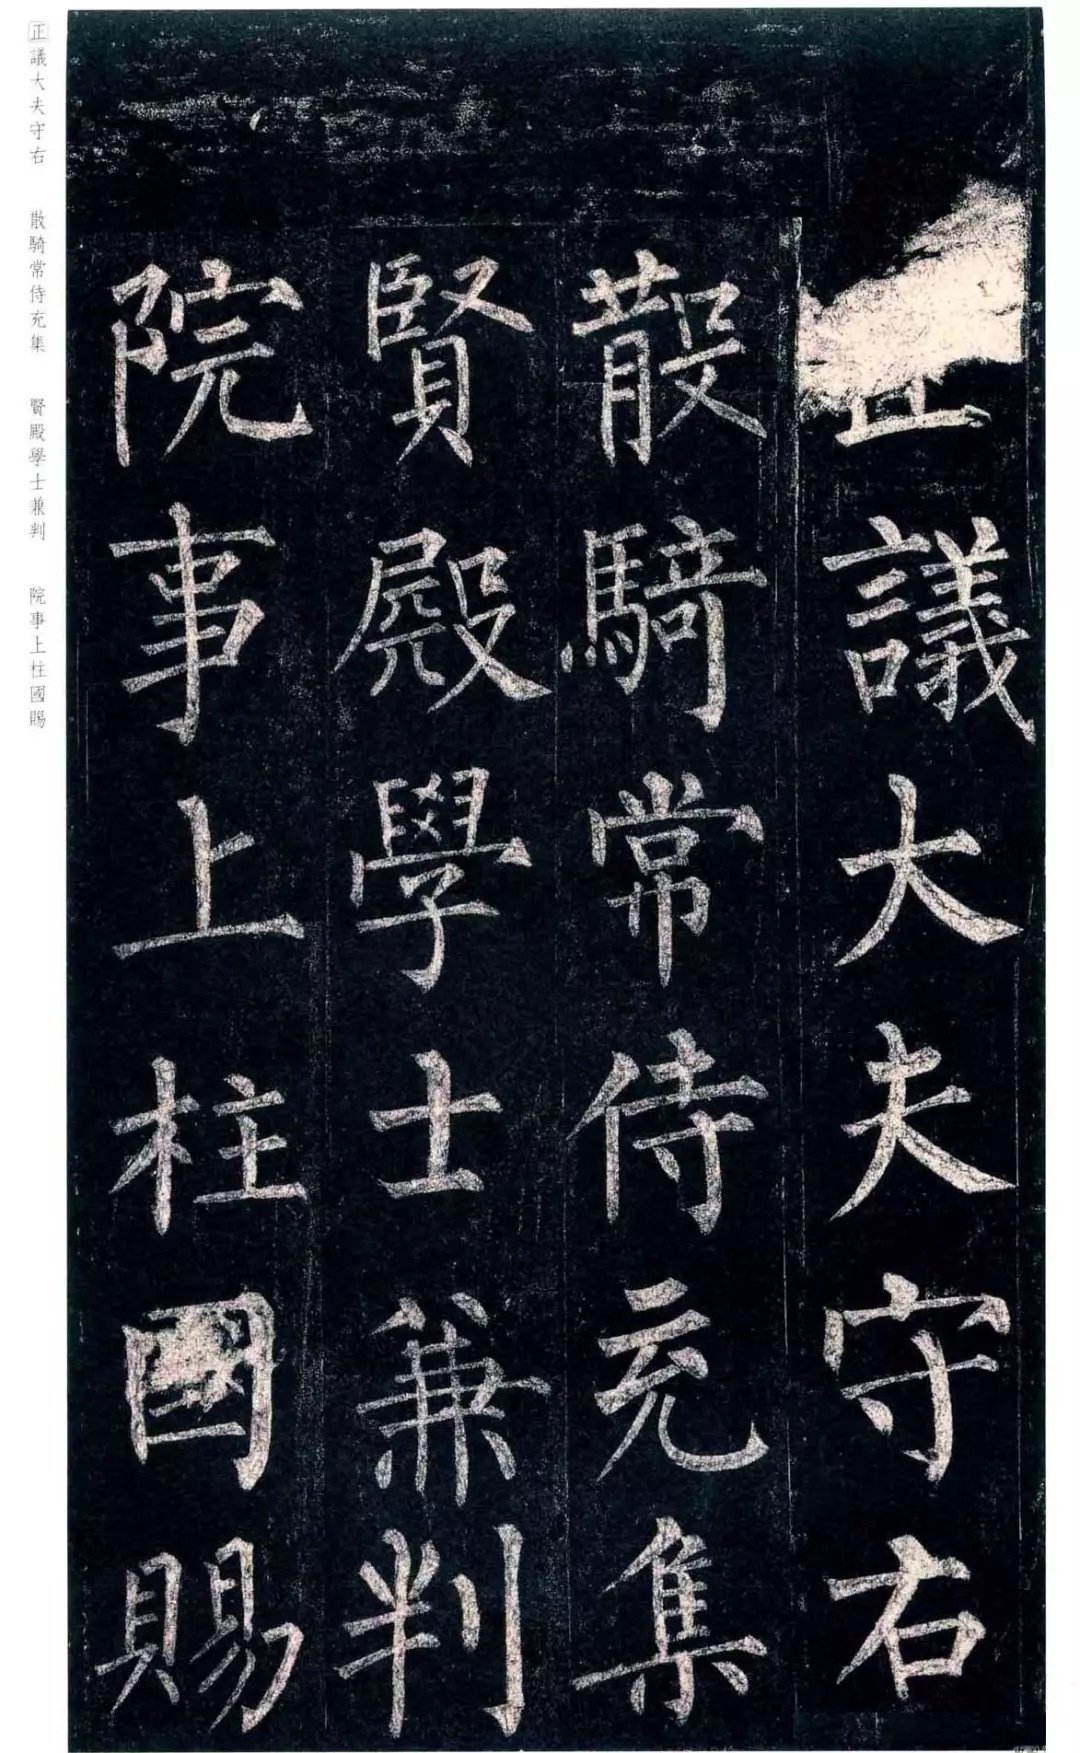 正議大夫守右
散騎常侍充集
賢殿學士兼判
院事上柱國賜
正議大夫守右　散騎常侍充集　賢殿學士兼判　院事上柱國賜